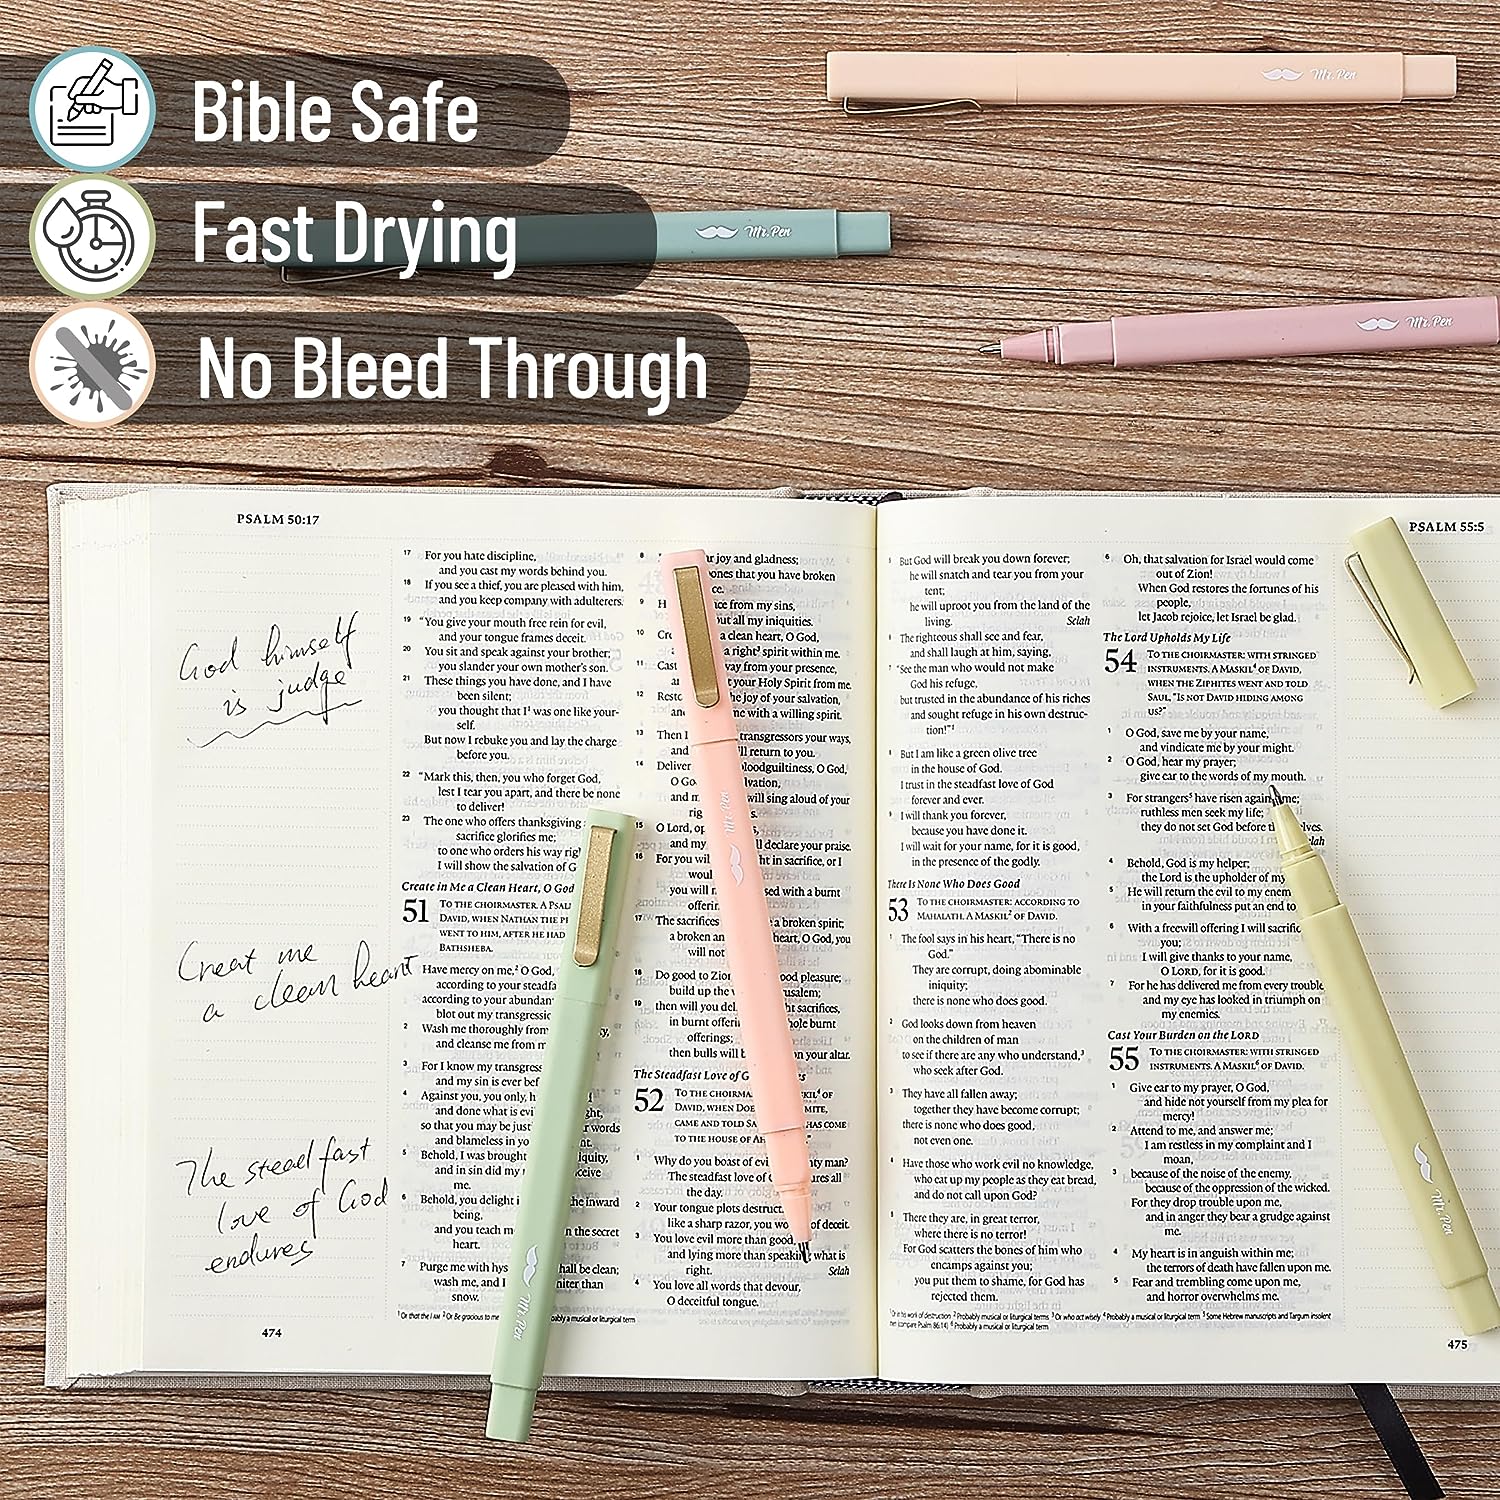 Bible Safe
Fast Drying
No Bleed Through
Mr. Pen
Mr. Pen
Mr. Pen
PSALM 50:17
God himself
is judge
Creat me
a clean heart
The steadfast
love of God
endures
474
17 For you hate discipline,
and you cast my words behind you.
18 If you see a thief, you are pleased with him,
and you keep company with adulterers.
19 “You give your mouth free rein for evil,
and your tongue frames deceit.
20 You sit and speak against your brother;
you slander your own mother's son.
21 These things you have done, and I have
been silent;
you thought that I¹ was one like your-
self.
But now I rebuke you and lay the charge
before you.
22 “Mark this, then, you who forget God,
lest I tear you apart, and there be none
to deliver!
23 The one who offers thanksgiving
sacrifice glorifies me;
to one who orders his way
I will show the salvation of
Create in Me a Clean Heart, O God
51 TO THE CHOIRMASTER. A
DAVID, WHEN NATHAN THE
WENT TO HIM, AFTER HE HAD
BATHSHEBA.
Have mercy on me,² O God,
according to your
according to your
blot out my
2 Wash me thoroughly from
and cleanse me from
3 For I know my
and my sin is ever
4 Against you, you only,
and done what is
so that you may be words
and blameless in
5 Behold, I was brought
and in sin did my
me.
6 Behold, you delight the inward
being,
and you teach in the secret
heart.
7 Purge me with be clean;
wash me, and I than
snow.
¹ Or that the I AM ² Or Be gracious to me a musical or liturgical term
8 joy and gladness;
that you have broken
9 from my sins,
all my iniquities.
10 a clean heart, O God,
a right³ spirit within me.
11 from your presence,
your Holy Spirit from me.
12 the joy of your salvation,
me with a willing spirit.
13 Then I transgressors your ways,
and will return to you.
14 Deliver bloodguiltiness, O God,
O
and will sing aloud of your
15 O Lord,
and my declare your praise.
16 For you will in sacrifice, or I
you will with a burnt
17 The sacrifices a broken spirit;
a broken heart, O God, you
will not
18 Do good to good pleasure;
build up the
19 then will you sacrifices,
in burnt burnt
offerings;
then bulls will on your altar.
The Steadfast Love of
52 TO THE OF
DAVID, WHEN
CAME AND TOLD HAS COME
TO THE HOUSE OF
1 Why do you boast of man?
The steadfast love of all
the day.
2 Your tongue plots
like a sharp razor, you of deceit.
3 You love evil more than good,
and lying more than speaking what is
right. Selah
4 You love all words that devour,
O deceitful tongue.
Mr. Pen
Mr. Pen
5 But God will break you down forever;
he will snatch and tear you from your
tent;
he will uproot you from the land of the
living. Selah
6 The righteous shall see and fear,
and shall laugh at him, saying,
7 “See the man who would not make
God his refuge,
but trusted in the abundance of his riches
and sought refuge in his own destruc-
tion!”¹
8 But I am like a green olive tree
in the house of God.
I trust in the steadfast love of God
forever and ever.
9 I will thank you forever,
because you have done it.
I will wait for your name, for it is good,
in the presence of the godly.
There Is None Who Does Good
53 TO THE CHOIRMASTER: ACCORDING TO
MAHALATH. A MASKIL² OF DAVID.
1 The fool says in his heart, “There is no
God.”
They are corrupt, doing abominable
iniquity;
there is none who does good.
2 God looks down from heaven
on the children of man
to see if there are any who understand,³
who seek after God.
3 They have all fallen away;
together they have become corrupt;
there is none who does good,
not even one.
4 Have those who work evil no knowledge,
who eat up my people as they eat bread,
and do not call upon God?
5 There they are, in great terror,
where there is no terror!
For God scatters the bones of him who
encamps against you;
you put them to shame, for God has
rejected them.
PSALM 55:5
6 Oh, that salvation for Israel would come
out of Zion!
When God restores the fortunes of his
people,
let Jacob rejoice, let Israel be glad.
The Lord Upholds My Life
54 TO THE CHOIRMASTER: WITH STRINGED
INSTRUMENTS. A MASKIL⁴ OF DAVID,
WHEN THE ZIPHITES WENT AND TOLD
SAUL, “IS NOT DAVID HIDING AMONG
US?”
1 O God, save me by your name,
and vindicate me by your might.
2 O God, hear my prayer;
give ear to the words of my mouth.
3 For strangers⁵ have risen against me;
ruthless men seek my life;
they do not set God before
4 Behold, God is my helper;
the Lord is the upholder of my
5 He will return the evil to my
in your faithfulness put an end to
6 With a freewill offering I will
you;
I will give thanks to your name,
O LORD, for it is good.
7 For he has delivered me from every trouble
and my eye has looked in triumph on
my enemies.
Cast Your Burden on the LORD
55 TO THE CHOIRMASTER: WITH STRINGED
INSTRUMENTS. A MASKIL⁶ OF DAVID.
1 Give ear to my prayer, O God,
and hide not yourself from my plea for
mercy!
2 Attend to me, and answer me;
I am restless in my complaint and I
moan,
3 because of the noise of the enemy,
because of the oppression of the wicked.
For they drop trouble upon me,
and in anger they bear a grudge against
me.
4 My heart is in anguish within me;
the terrors of death have fallen upon me.
5 Fear and trembling come upon me,
and horror overwhelms me.
Mr. Pen
¹ Or in his work of destruction ² Probably a musical or liturgical terms ³ Or who act wisely ⁴ Probably a musical or liturgical term ⁵ Some Hebrew manuscripts and Targum insolent
men (compare Psalm 86:14) ⁶ Probably a musical or liturgical term
475